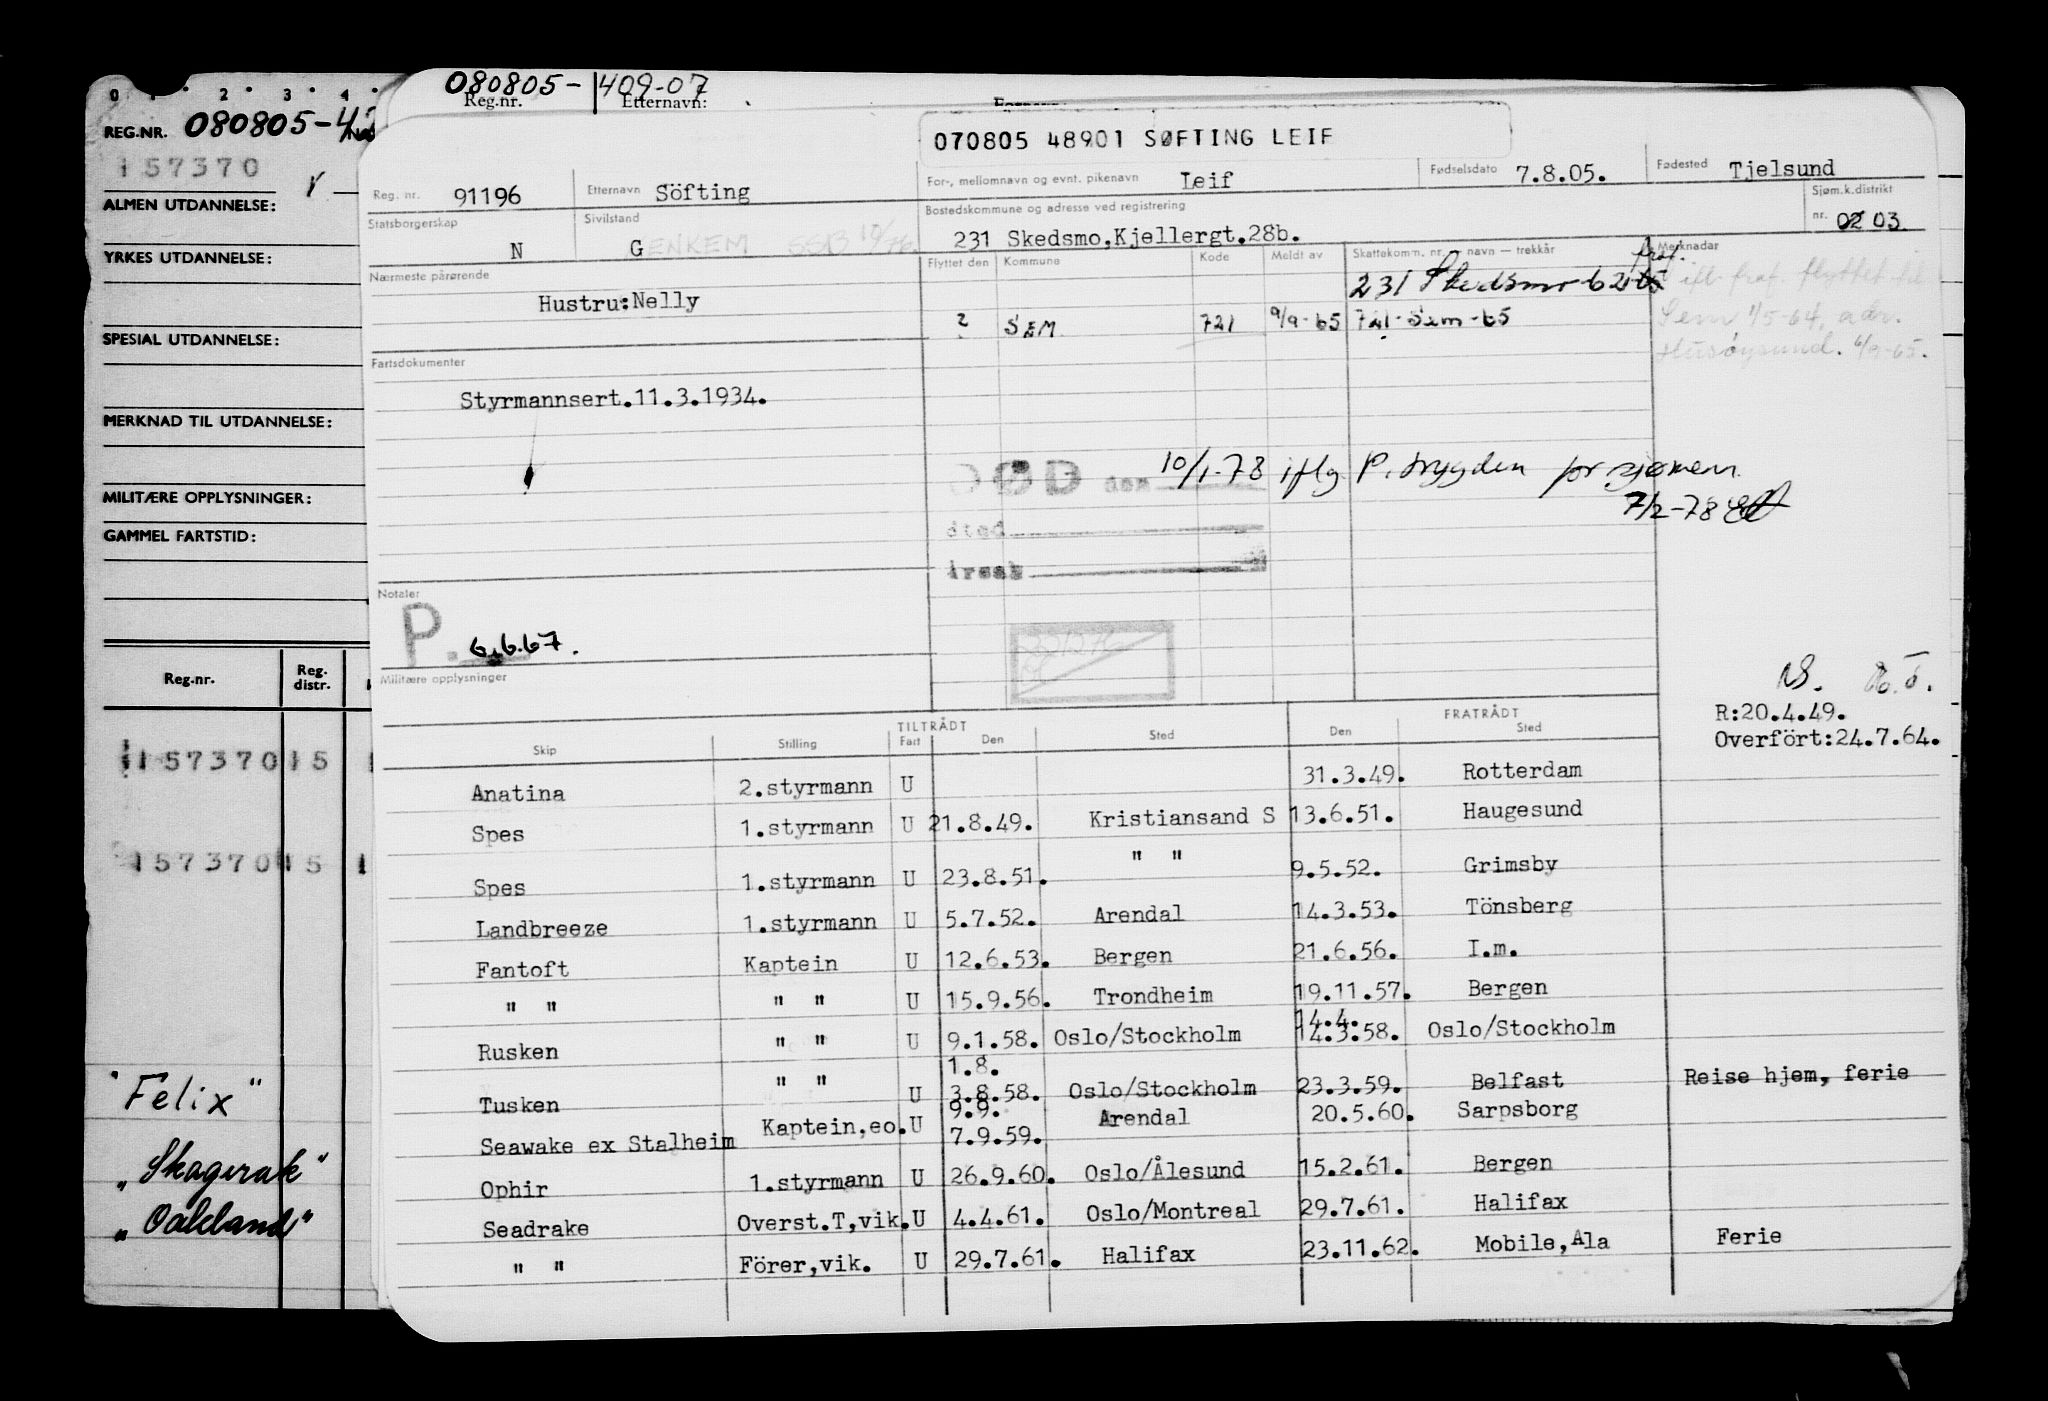 080805-409-07
Reg.nr. Etternavn:
0 1 2 3 4
REG.NR. 080805-4
157370
ALMEN UTDANNELSE:
YRKES UTDANNELSE:
SPESIAL UTDANNELSE:
MERKNAD TIL UTDANNELSE:
MILITÆRE OPPLYSNINGER:
GAMMEL FARTSTID:
Reg.nr. Reg. distr.
157370 15
157370 15
"Felix"
"Skagerak"
"Oakland"
070805 48901 SØFTING LEIF
Reg. nr. 91196 Etternavn Söfting For-, mellomnavn og evnt. pikenavn Leif Fødselsdato 7.8.05. Fødested Tjelsund
Statsborgerskap N Sivilstand G ENKEM SSB 10/76 Bostedskommune og adresse ved registrering 231 Skedsmo, Kjellergt.28b. Sjøm.k.distrikt nr. 02 03.
Nærmeste pårørende Hustru:Nelly
Flyttet den Kommune Kode Meldt av Skattekomm. nr. – navn – trekkår Merknadar
231 Skedsmo 62
2 SEM 721 9/9-65 721-Sem-65
ifl. fraf. flyttet til
Sem 1/5-64, adr.
Husøysund. 6/9-65.
Fartsdokumenter
Styrmannsert.11.3.1934.
DØD den 10/1-78 iflg P. trygden for sjømenn.
7/2-78
sted
årsak
Notaler
P. 6.6.67.
Militære opplysninger
R:20.4.49.
Overfört:24.7.64.
TILTRÅDT FRATRÅDT
Skip Stilling Fart Den Sted Den Sted
Anatina 2.styrmann U 31.3.49. Rotterdam
Spes 1.styrmann U 21.8.49. Kristiansand S 13.6.51. Haugesund
Spes 1.styrmann U 23.8.51. " " 9.5.52. Grimsby
Landbreeze 1.styrmann U 5.7.52. Arendal 14.3.53. Tönsberg
Fantoft Kaptein U 12.6.53. Bergen 21.6.56. I.m.
" " " " U 15.9.56. Trondheim 19.11.57. Bergen
14.4.
Rusken " " U 9.1.58. Oslo/Stockholm 14.3.58. Oslo/Stockholm
1.8.
Tusken " " U 3.8.58. Oslo/Stockholm 23.3.59. Belfast Reise hjem, ferie
9.9.
Seawake ex Stalheim Kaptein,eo. U 7.9.59. Arendal 20.5.60. Sarpsborg
Ophir 1.styrmann U 26.9.60. Oslo/Ålesund 15.2.61. Bergen
Seadrake Overst.T,vik. U 4.4.61. Oslo/Montreal 29.7.61. Halifax
" " Förer,vik. U 29.7.61. Halifax 23.11.62. Mobile,Ala Ferie